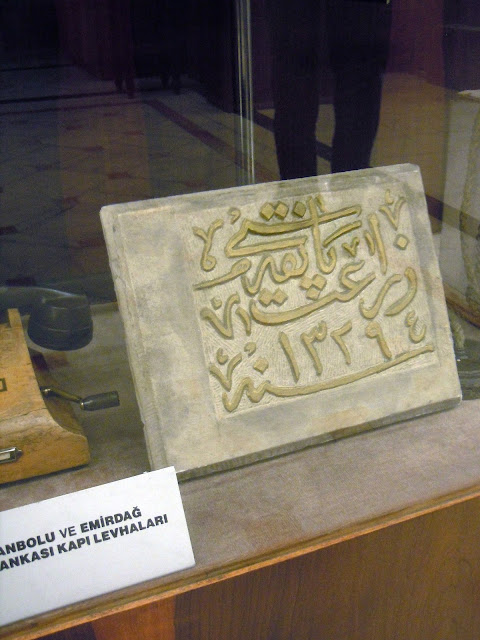 زراعت بانقه سی
سنه ١٣٢٩
ANBOLU VE EMİRDAĞ
ANKASI KAPI LEVHALARI